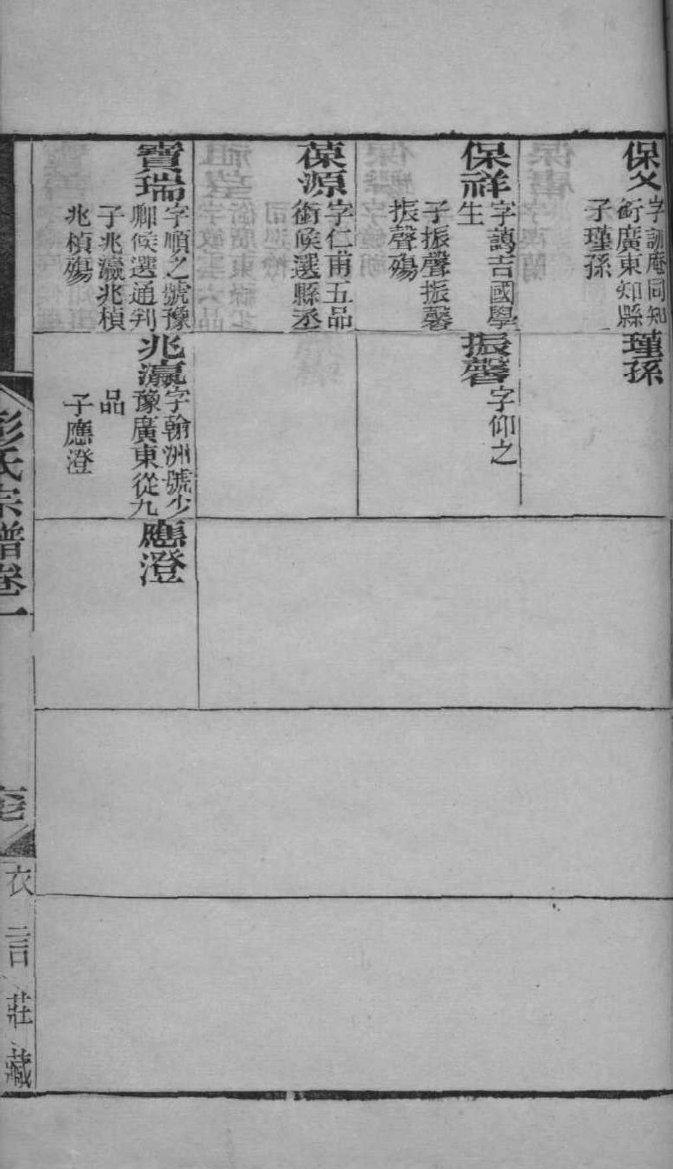 保父
字訓庵同知
銜廣東知縣
子瑾孫
瑾孫
保祥
字藹吉國學
生
子振聲振馨
振聲殤
振馨
字仰之
葆源
字仁甫五品
銜候選縣丞
寶瑞
字順之號豫
卿候選通判
子兆瀛兆楨
兆楨殤
兆瀛
字翰洲號少
豫廣東從九
品
子應澄
應澄
彭氏宗譜卷一
衣言莊藏